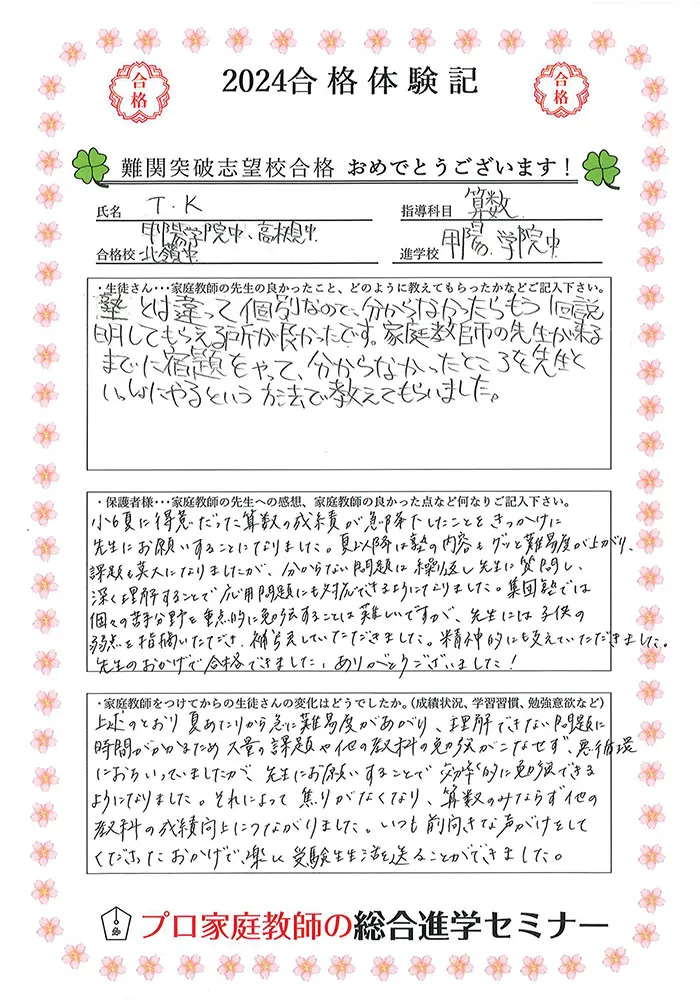 2024合格体験記
合格
合格
難関突破志望校合格 おめでとうございます！
氏名 T.K 指導科目 算数
合格校 甲陽学院中、高槻中 北嶺中 進学校 甲陽学院中
・生徒さん・・・家庭教師の先生の良かったこと、どのように教えてもらったかなどご記入下さい。
塾とは違って個別なので、分からなかったらもう1回説
明してもらえる所が良かったです。家庭教師の先生が来る
までに宿題をやって、分からなかったところを先生と
いっしょにやるという方法で教えてもらいました。
・保護者様・・・家庭教師の先生への感想、家庭教師の良かった点など何なりご記入下さい。
小6夏に得意だった算数の成績が急降下したことをきっかけに
先生にお願いすることになりました。夏以降は塾の内容もグッと難易度が上がり、
課題も莫大になりましたが、分からない問題は繰り返し先生に質問し、
深く理解することで応用問題にも対応できるようになりました。集団塾では
個々の苦手分野を重点的に勉強することは難しいですが、先生には子供の
弱点を指摘いただき、補強していただきました。精神的にも支えていただきました。
先生のおかげで合格できました。ありがとうございました！
・家庭教師をつけてからの生徒さんの変化はどうでしたか。（成績状況、学習習慣、勉強意欲など）
上述のとおり夏あたりから急に難易度があがり、理解できない問題に
時間がかかるため大量の課題や他の教科の勉強がこなせず悪循環
におちいっていましたが、先生にお願いすることで効率的に勉強できる
ようになりました。それによって焦りがなくなり、算数のみならず他の
教科の成績向上につながりました。いつも前向きな声がけをして
くださったおかげで、楽しい受験生生活を送ることができました。
プロ家庭教師の総合進学セミナー